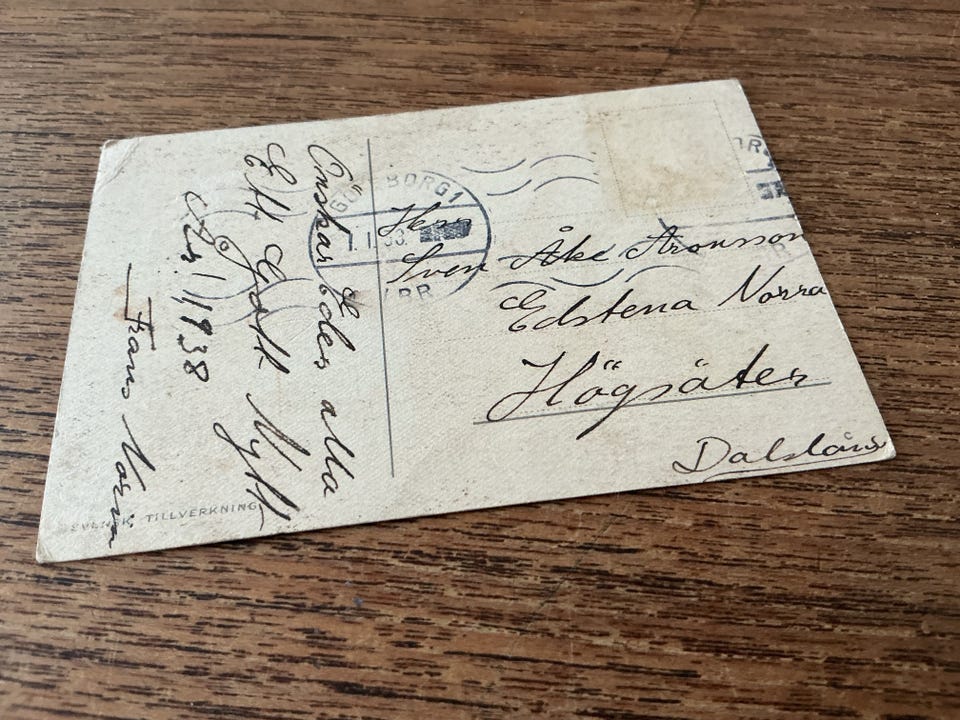 Önskar Eder alla
Ett Gott Nytt
År 1/1 1938
Frans Norin
SVENSK TILLVERKNING
GÖTEBORG 1
1.1.38.
Herr
Sven Åke Aronsson
Edstena Norra
Högsäter
Dalsland